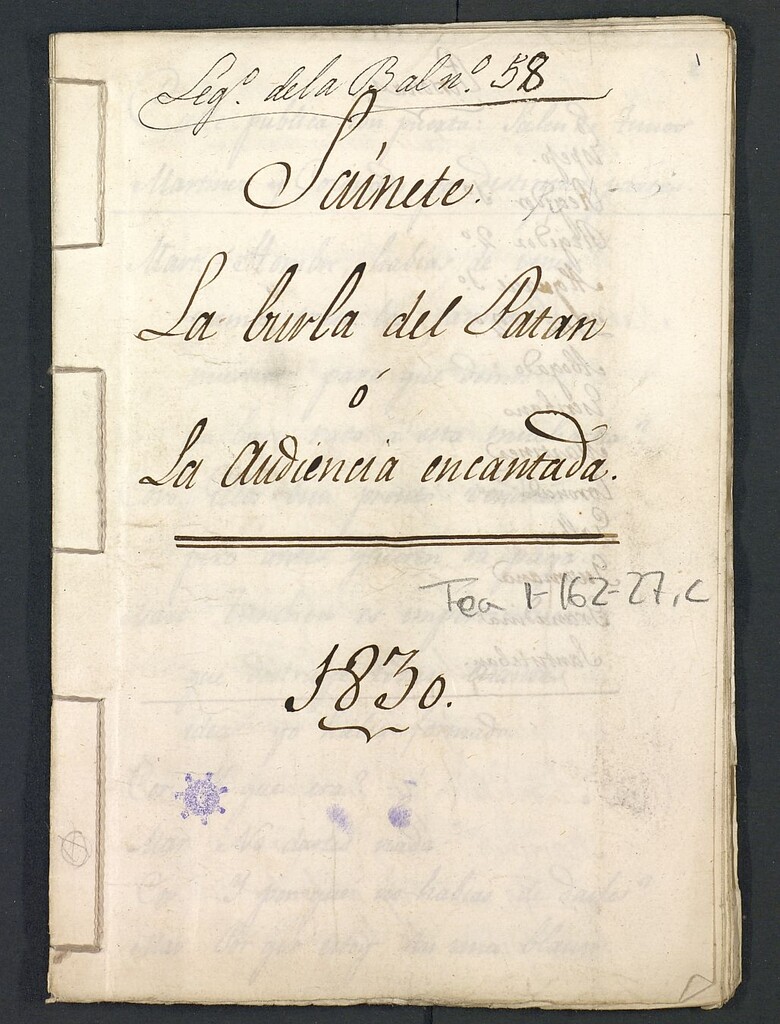 Leg.º dela B al n.º 58
Sáinete.
La burla del Patan
ó
La Audiencia encantada.
Tea 1-162-27, C
1830.